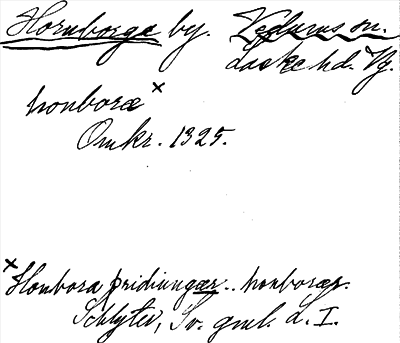 Hornborga by. Vedums sn.
Laske hd. Vg.
honboræ ×
Omkr. 1325.
× Honbora þridiungær.. honboræs.
Schlyter, Sv. gml. L. I.